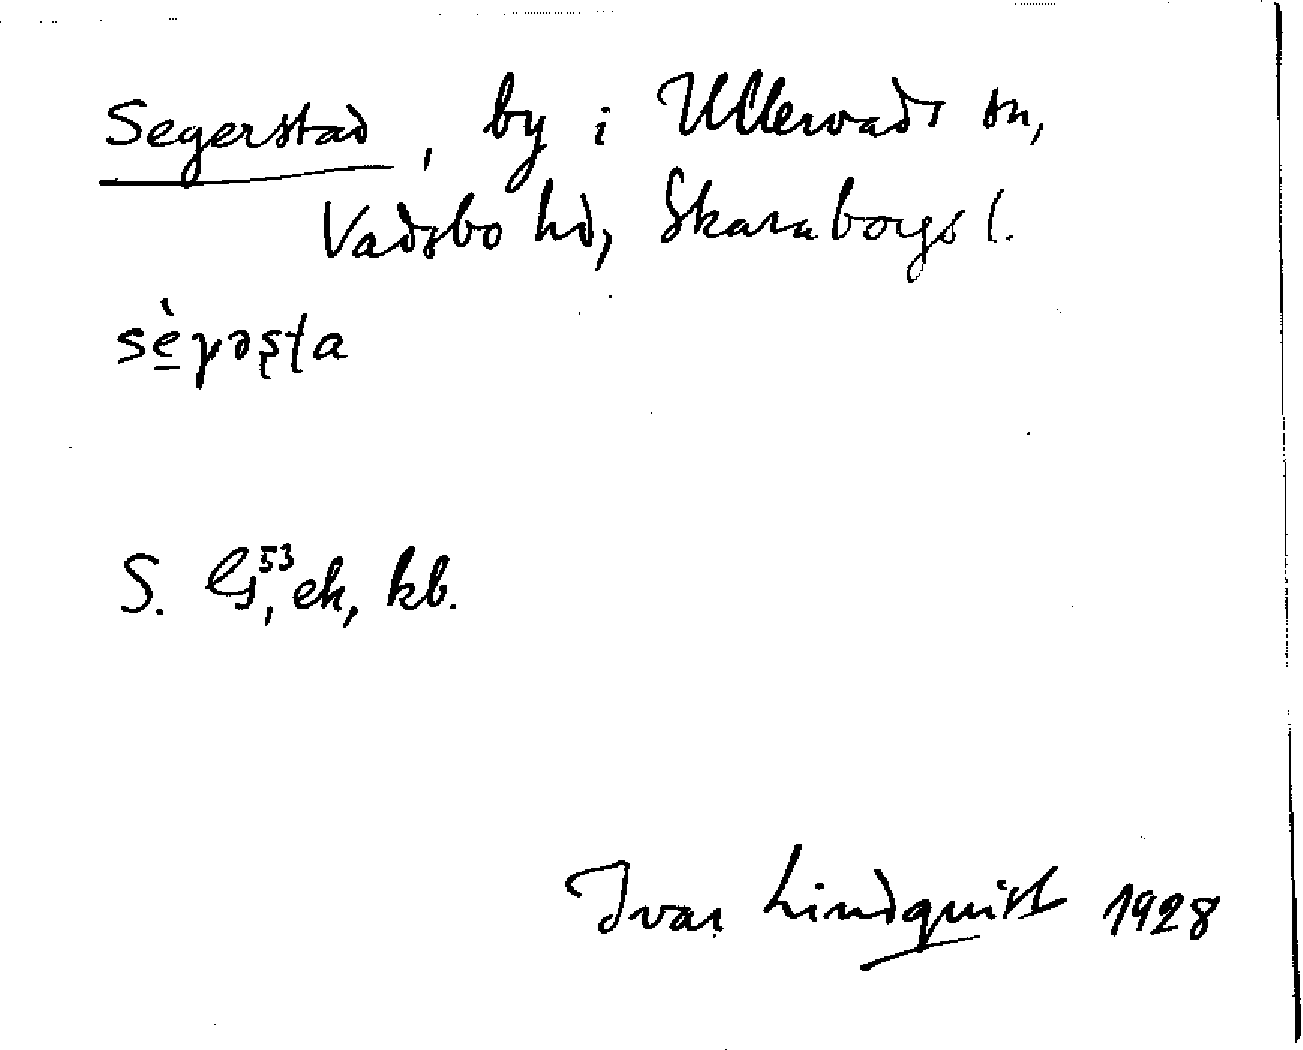 Segerstad, by i Ullervads sn,
Vadsbo hd, Skaraborgs l.
sè̱γəşta
S. G⁵³, ek, kb.
Ivar Lindquist 1928